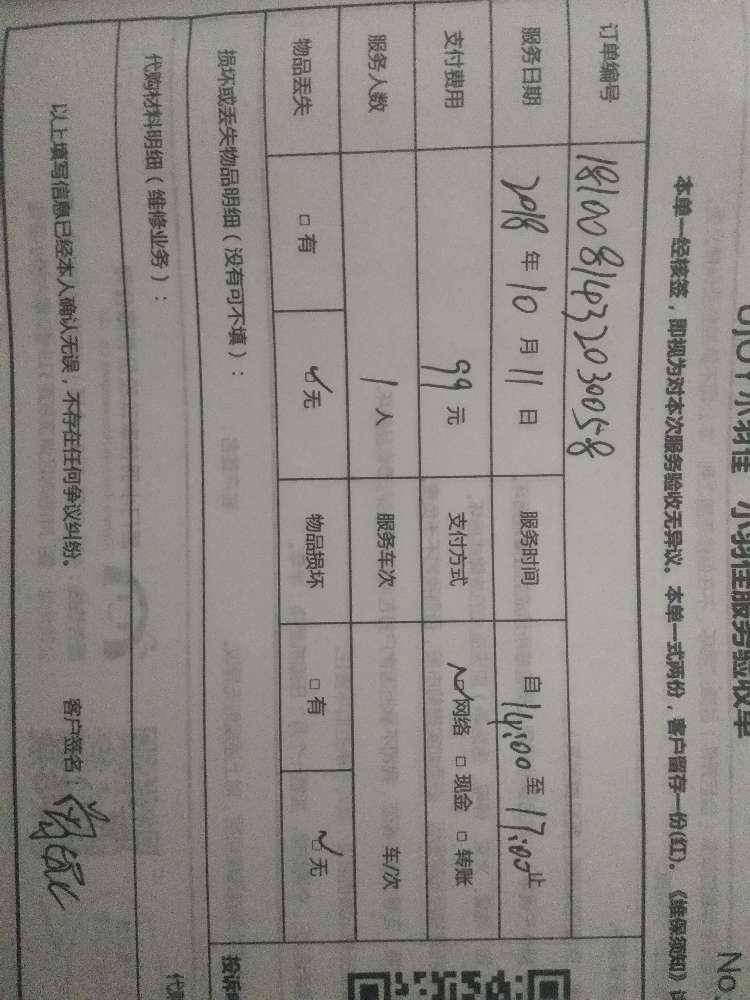 小羽佳 小羽佳服务验收单
No.
本单一经核签，即视为对本次服务验收无异议。本单一式两份，客户留存一份(红)。《维保须知》
订单编号 1810081432030058
服务日期 2018 年 10 月 11 日 服务时间 自 14:00 至 17:00 止
支付费用 99 元 支付方式 ☑网络 □现金 □转账
服务人数 1 人 服务车次 车/次
物品丢失 □有 ☑无 物品损坏 □有 ☑无
损坏或丢失物品明细（没有可不填）：
代购材料明细（维修业务）：
以上填写信息已经本人确认无误，不存在任何争议纠纷。 客户签名：
投诉
代购